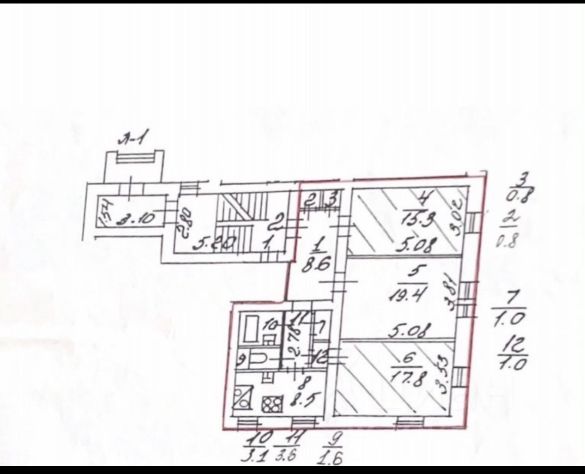 Л-1
3
0.8
2
0.8
1.54
3.10
2.80
5.20
2
1
2
3
1
8.6
4
15.3
5.08
3.02
5
19.4
5.08
3.81
7
1.0
12
1.0
6
17.8
3.53
10
11
7
2.76
9
12
8
8.5
10
3.1
11
3.6
9
1.6